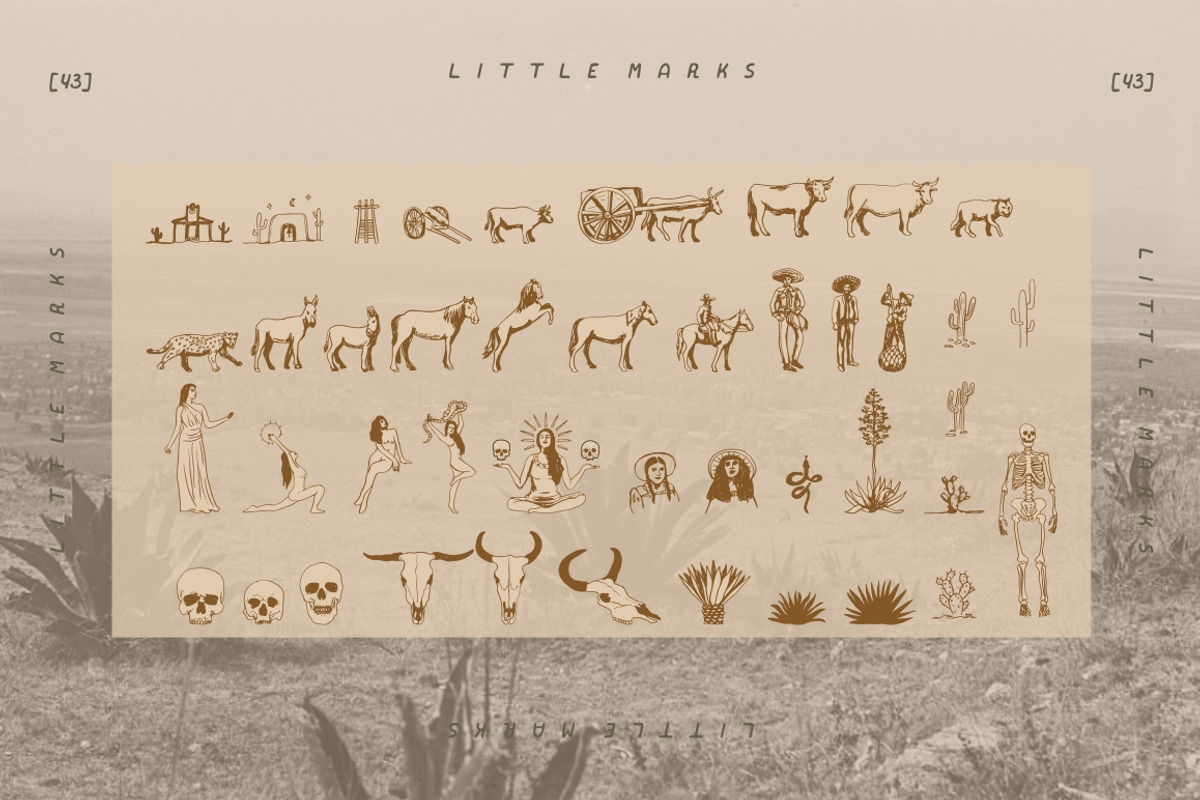 LITTLE MARKS
[43]
[43]
LITTLE MARKS
LITTLE MARKS
LITTLE MARKS